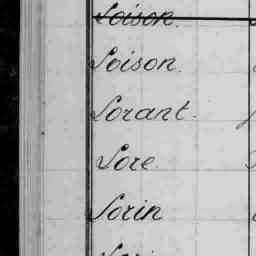 Loison.
Loison.
Lorant.
Lore
Lorin